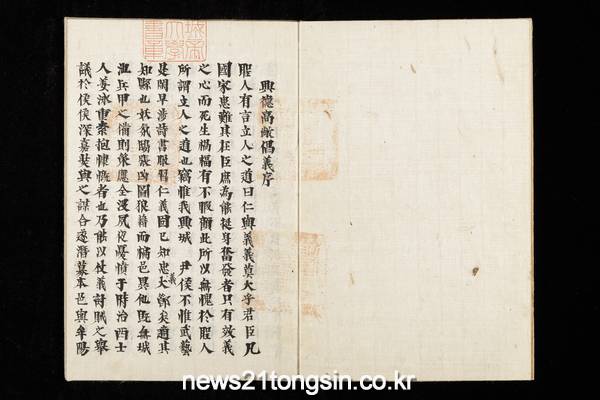 興德高敞倡義序
聖人有言立人之道曰仁與義義莫大乎君臣凡
國家患難其在臣庶為能挺身奮發者只有效義
之心而死生禍福有不暇顧此所以無愧於聖人
所謂立人之道也竊惟我興城 尹侯不惟武藝
是閑早涉詩書服習仁義國已知忠大義 矣適其
知縣也妖氛 漲凶圖狼藉而 邑異他既無城
沚兵甲之備則策應全沒夙夜憂憤于時治西士
人姜泳 抱慷慨者也乃能以仗義討賊之擧
議於侯侯深嘉奘與之謀合遂潛募本邑與牟陽
news21tongsin.co.kr